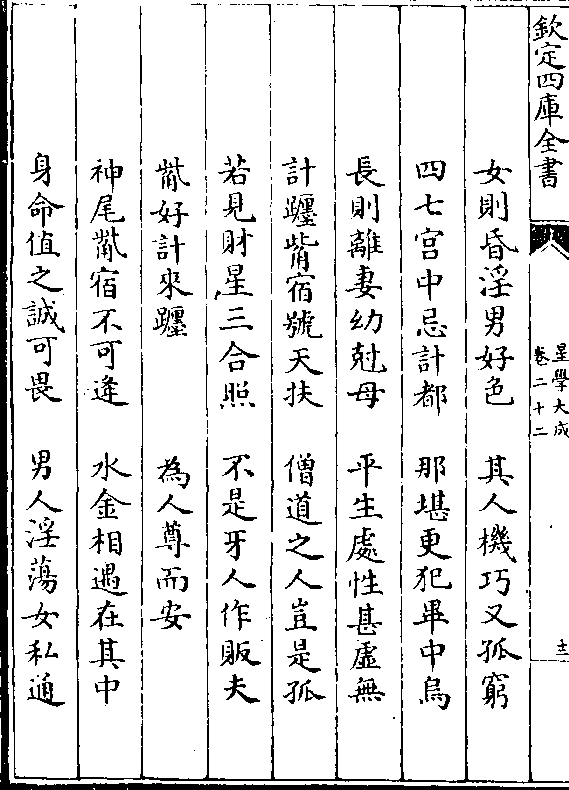 欽定四庫全書
星學大成
卷二十二
女則昏淫男好色　其人機巧又孤窮
四七宫中忌計都　那堪更犯畢中烏
長則離妻幼尅母　平生處性甚虛無
計躔觜宿號天扶　僧道之人豈是孤
若見財星三合照　不是牙人作販夫
觜好計來躔　為人尊而安
神尾觜宿不可逢　水金相遇在其中
身命值之誠可畏　男人淫蕩女私通